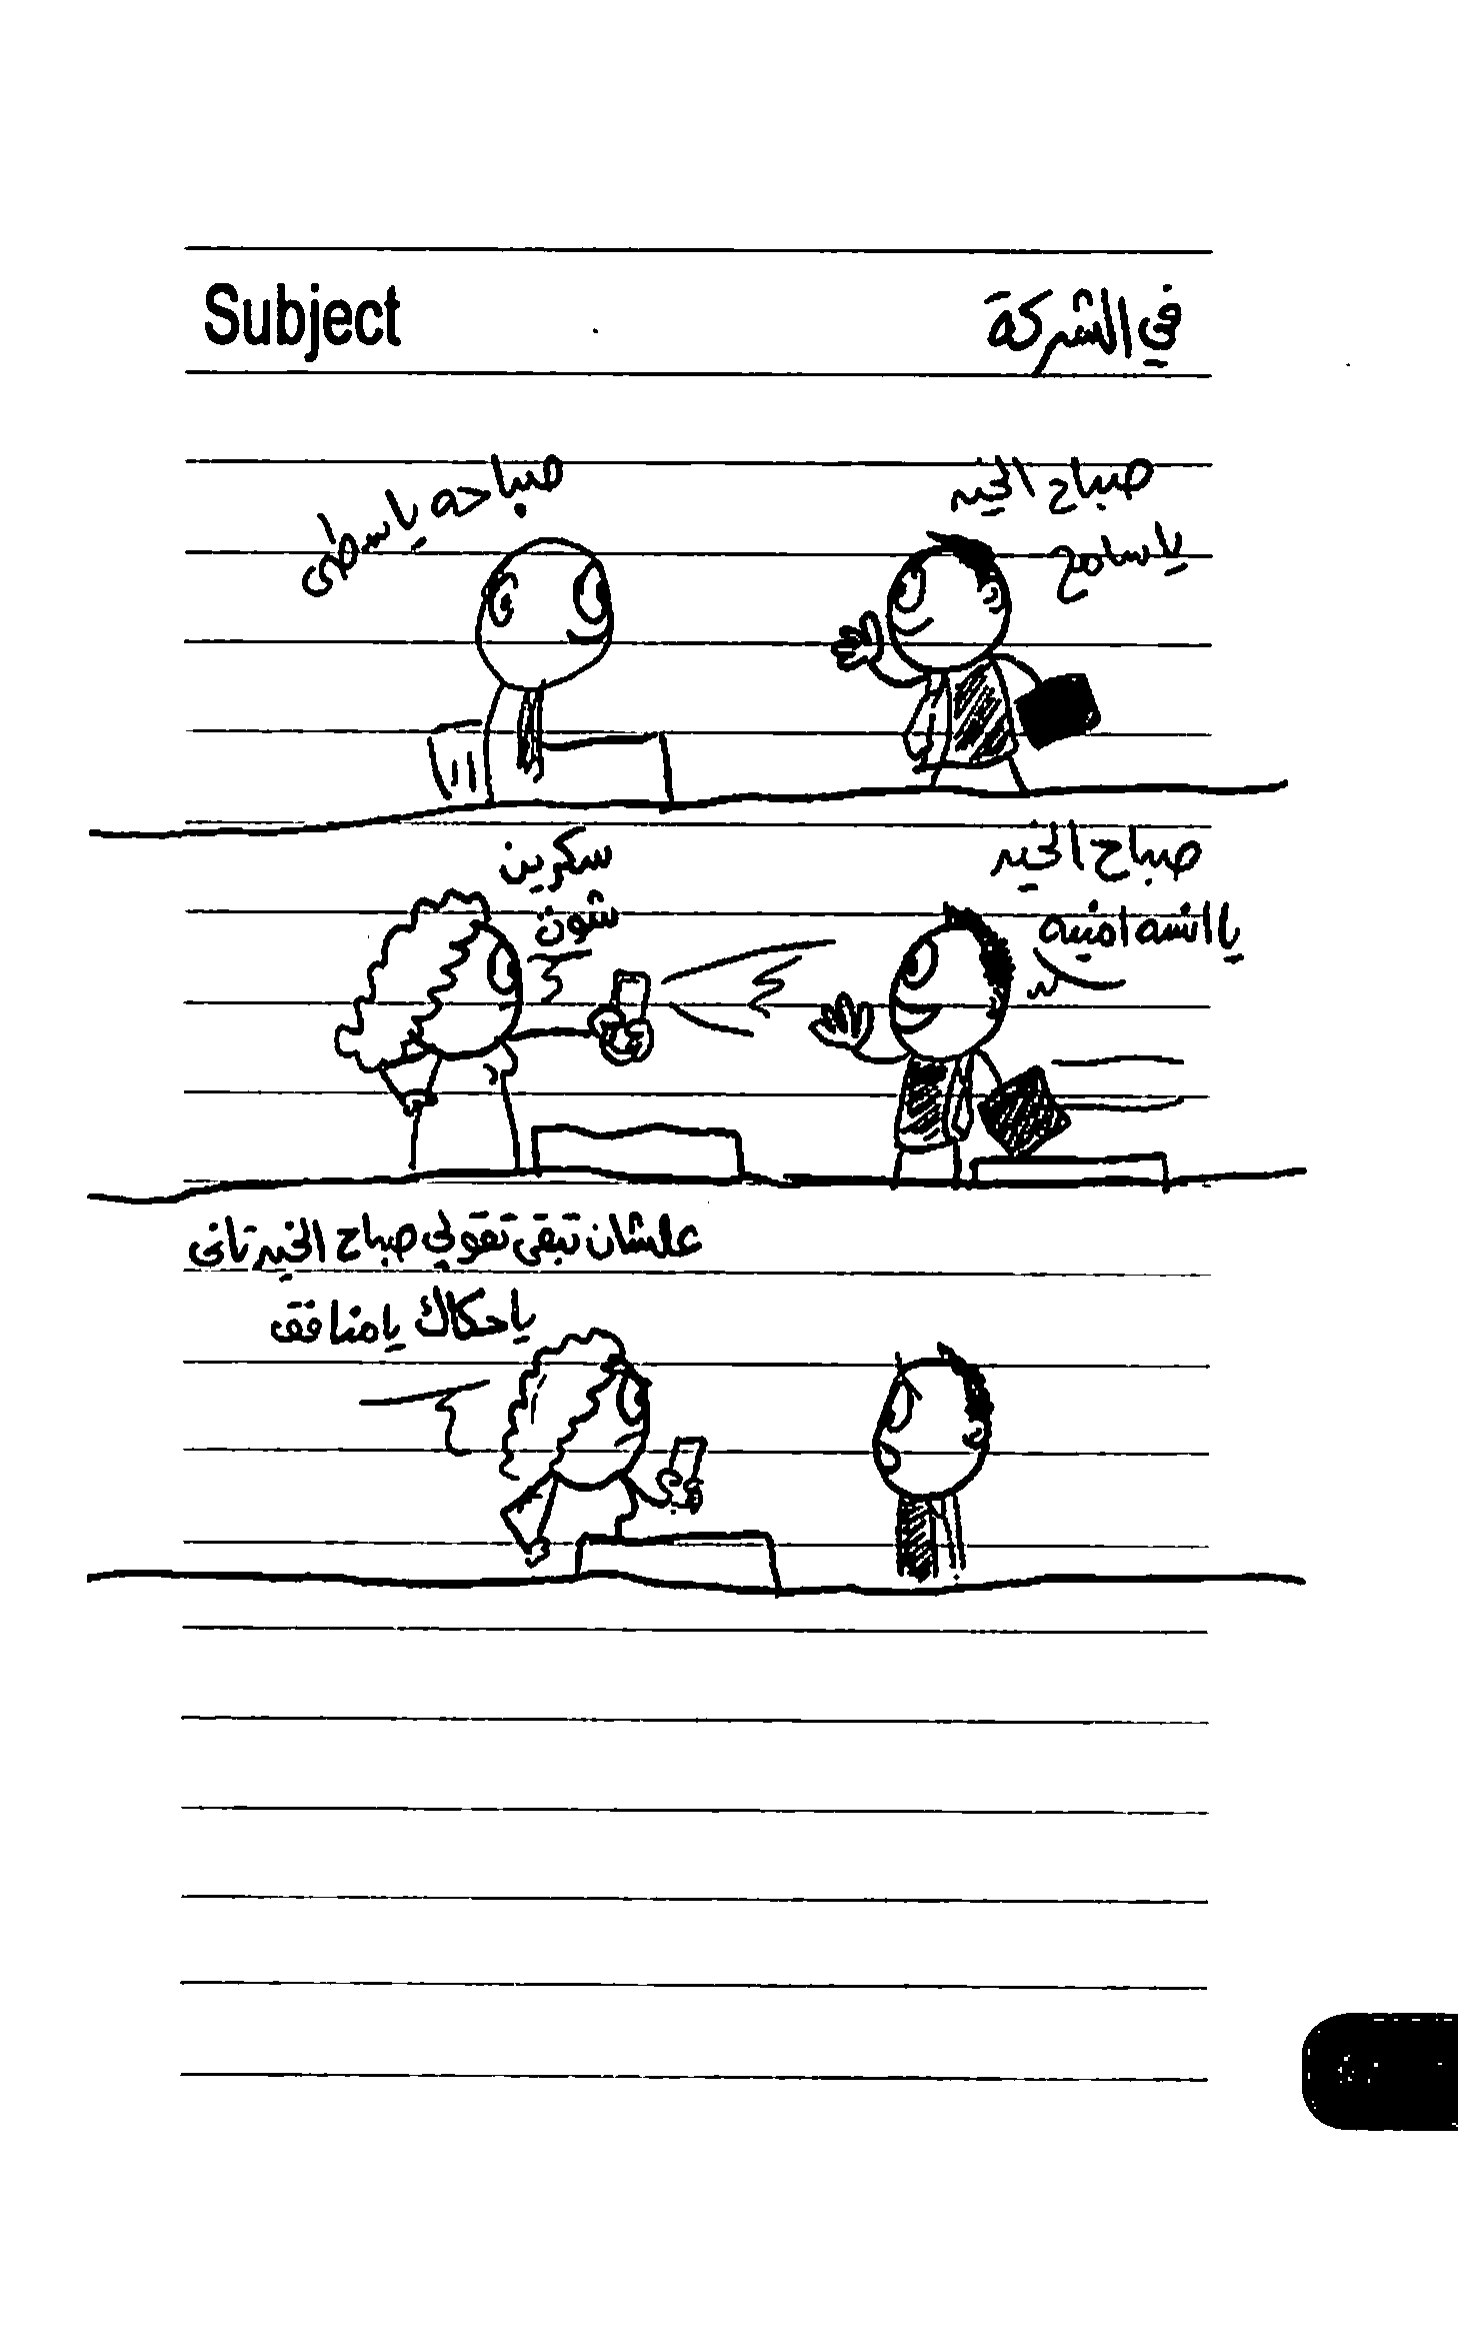 Subject
في الشركة
صباح الخير
يا سامح
صباحه ياسطى
صباح الخير
يا انسه امنيه
سكرين
شوت
علشان تبقى تقولي صباح الخير تاني
يا حكاك يا منافق